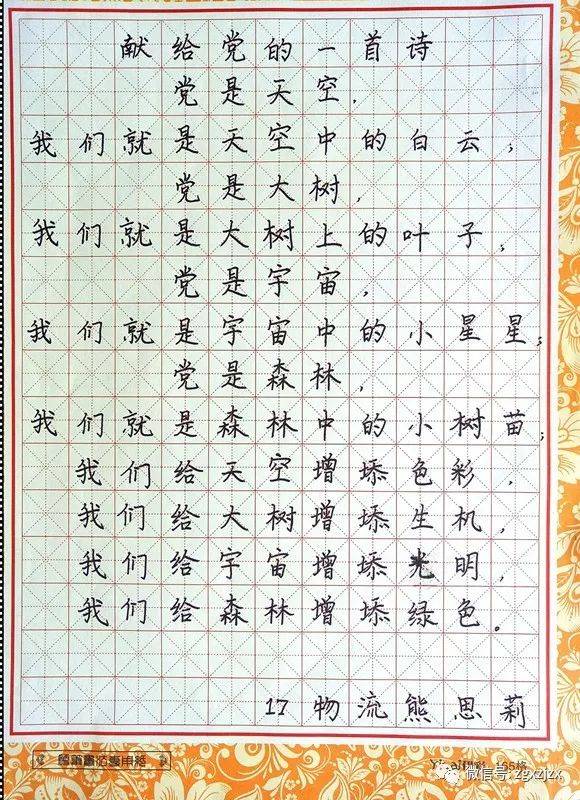 献给党的一首诗
党是天空，
我们就是天空中的白云；
党是大树，
我们就是大树上的叶子；
党是宇宙，
我们就是宇宙中的小星星；
党是森林，
我们就是森林中的小树苗；
我们给天空增添色彩，
我们给大树增添生机，
我们给宇宙增添光明，
我们给森林增添绿色。
17物流熊思莉
微信号: zgxzjzx